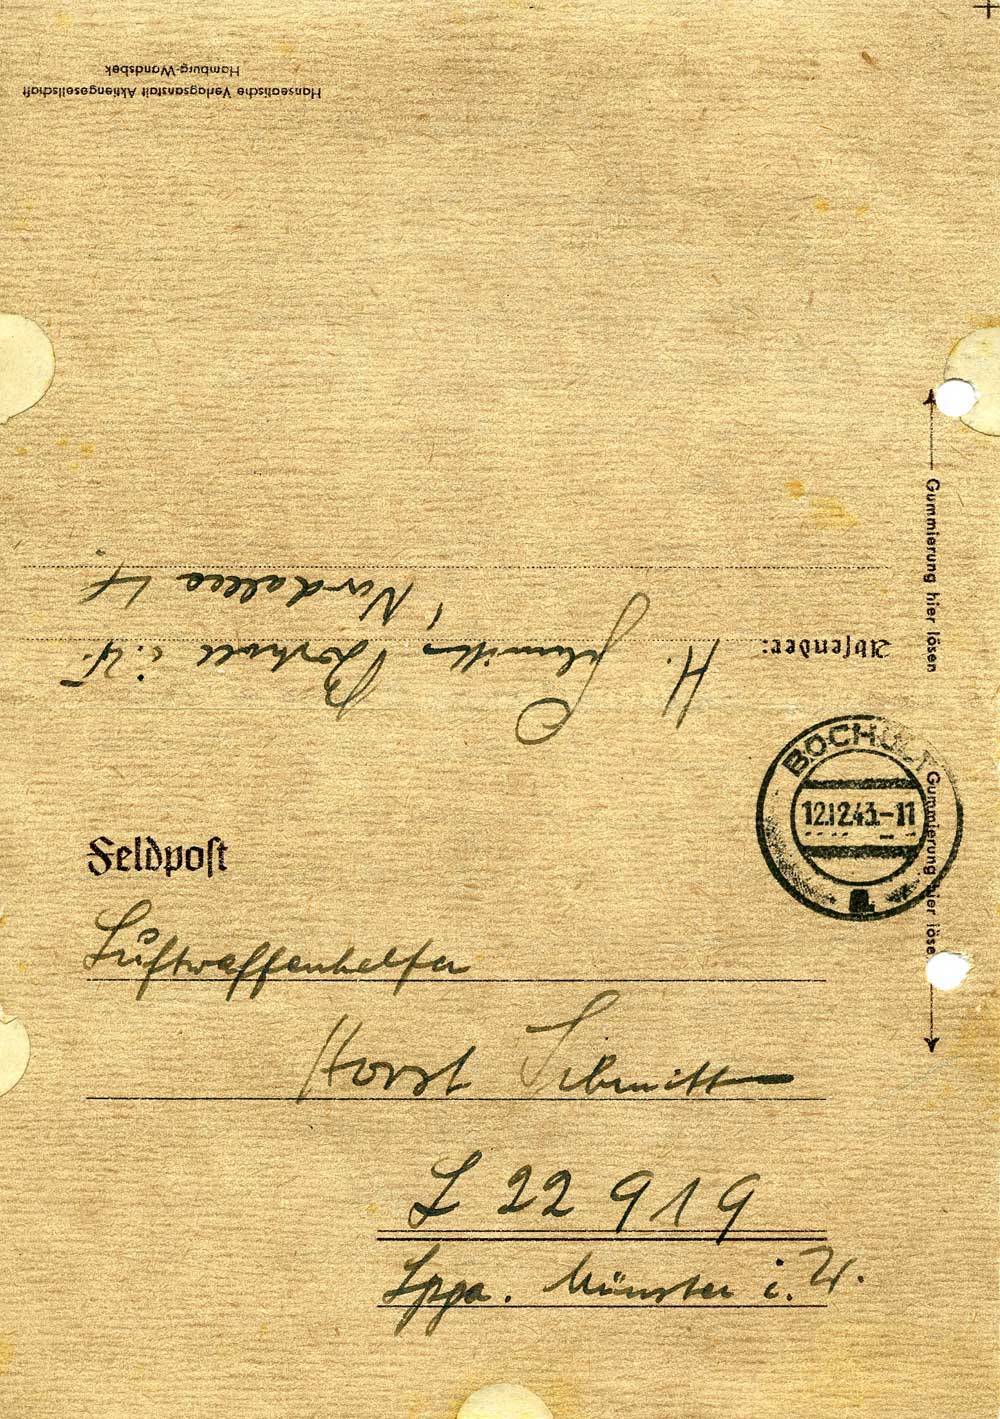 Hanseatische Verlagsanstalt Aktiengesellschaft
Hamburg-Wandsbek
Gummierung hier lösen
Absender: H. Schmitt Bocholt i. W.
Nordallee 4
BOCHOLT
12.12.43.-11
a
Gummierung hier lösen
Feldpost
Luftwaffenhelfer
Horst Schmitt
L 22 919
Lpga. Münster i. W.